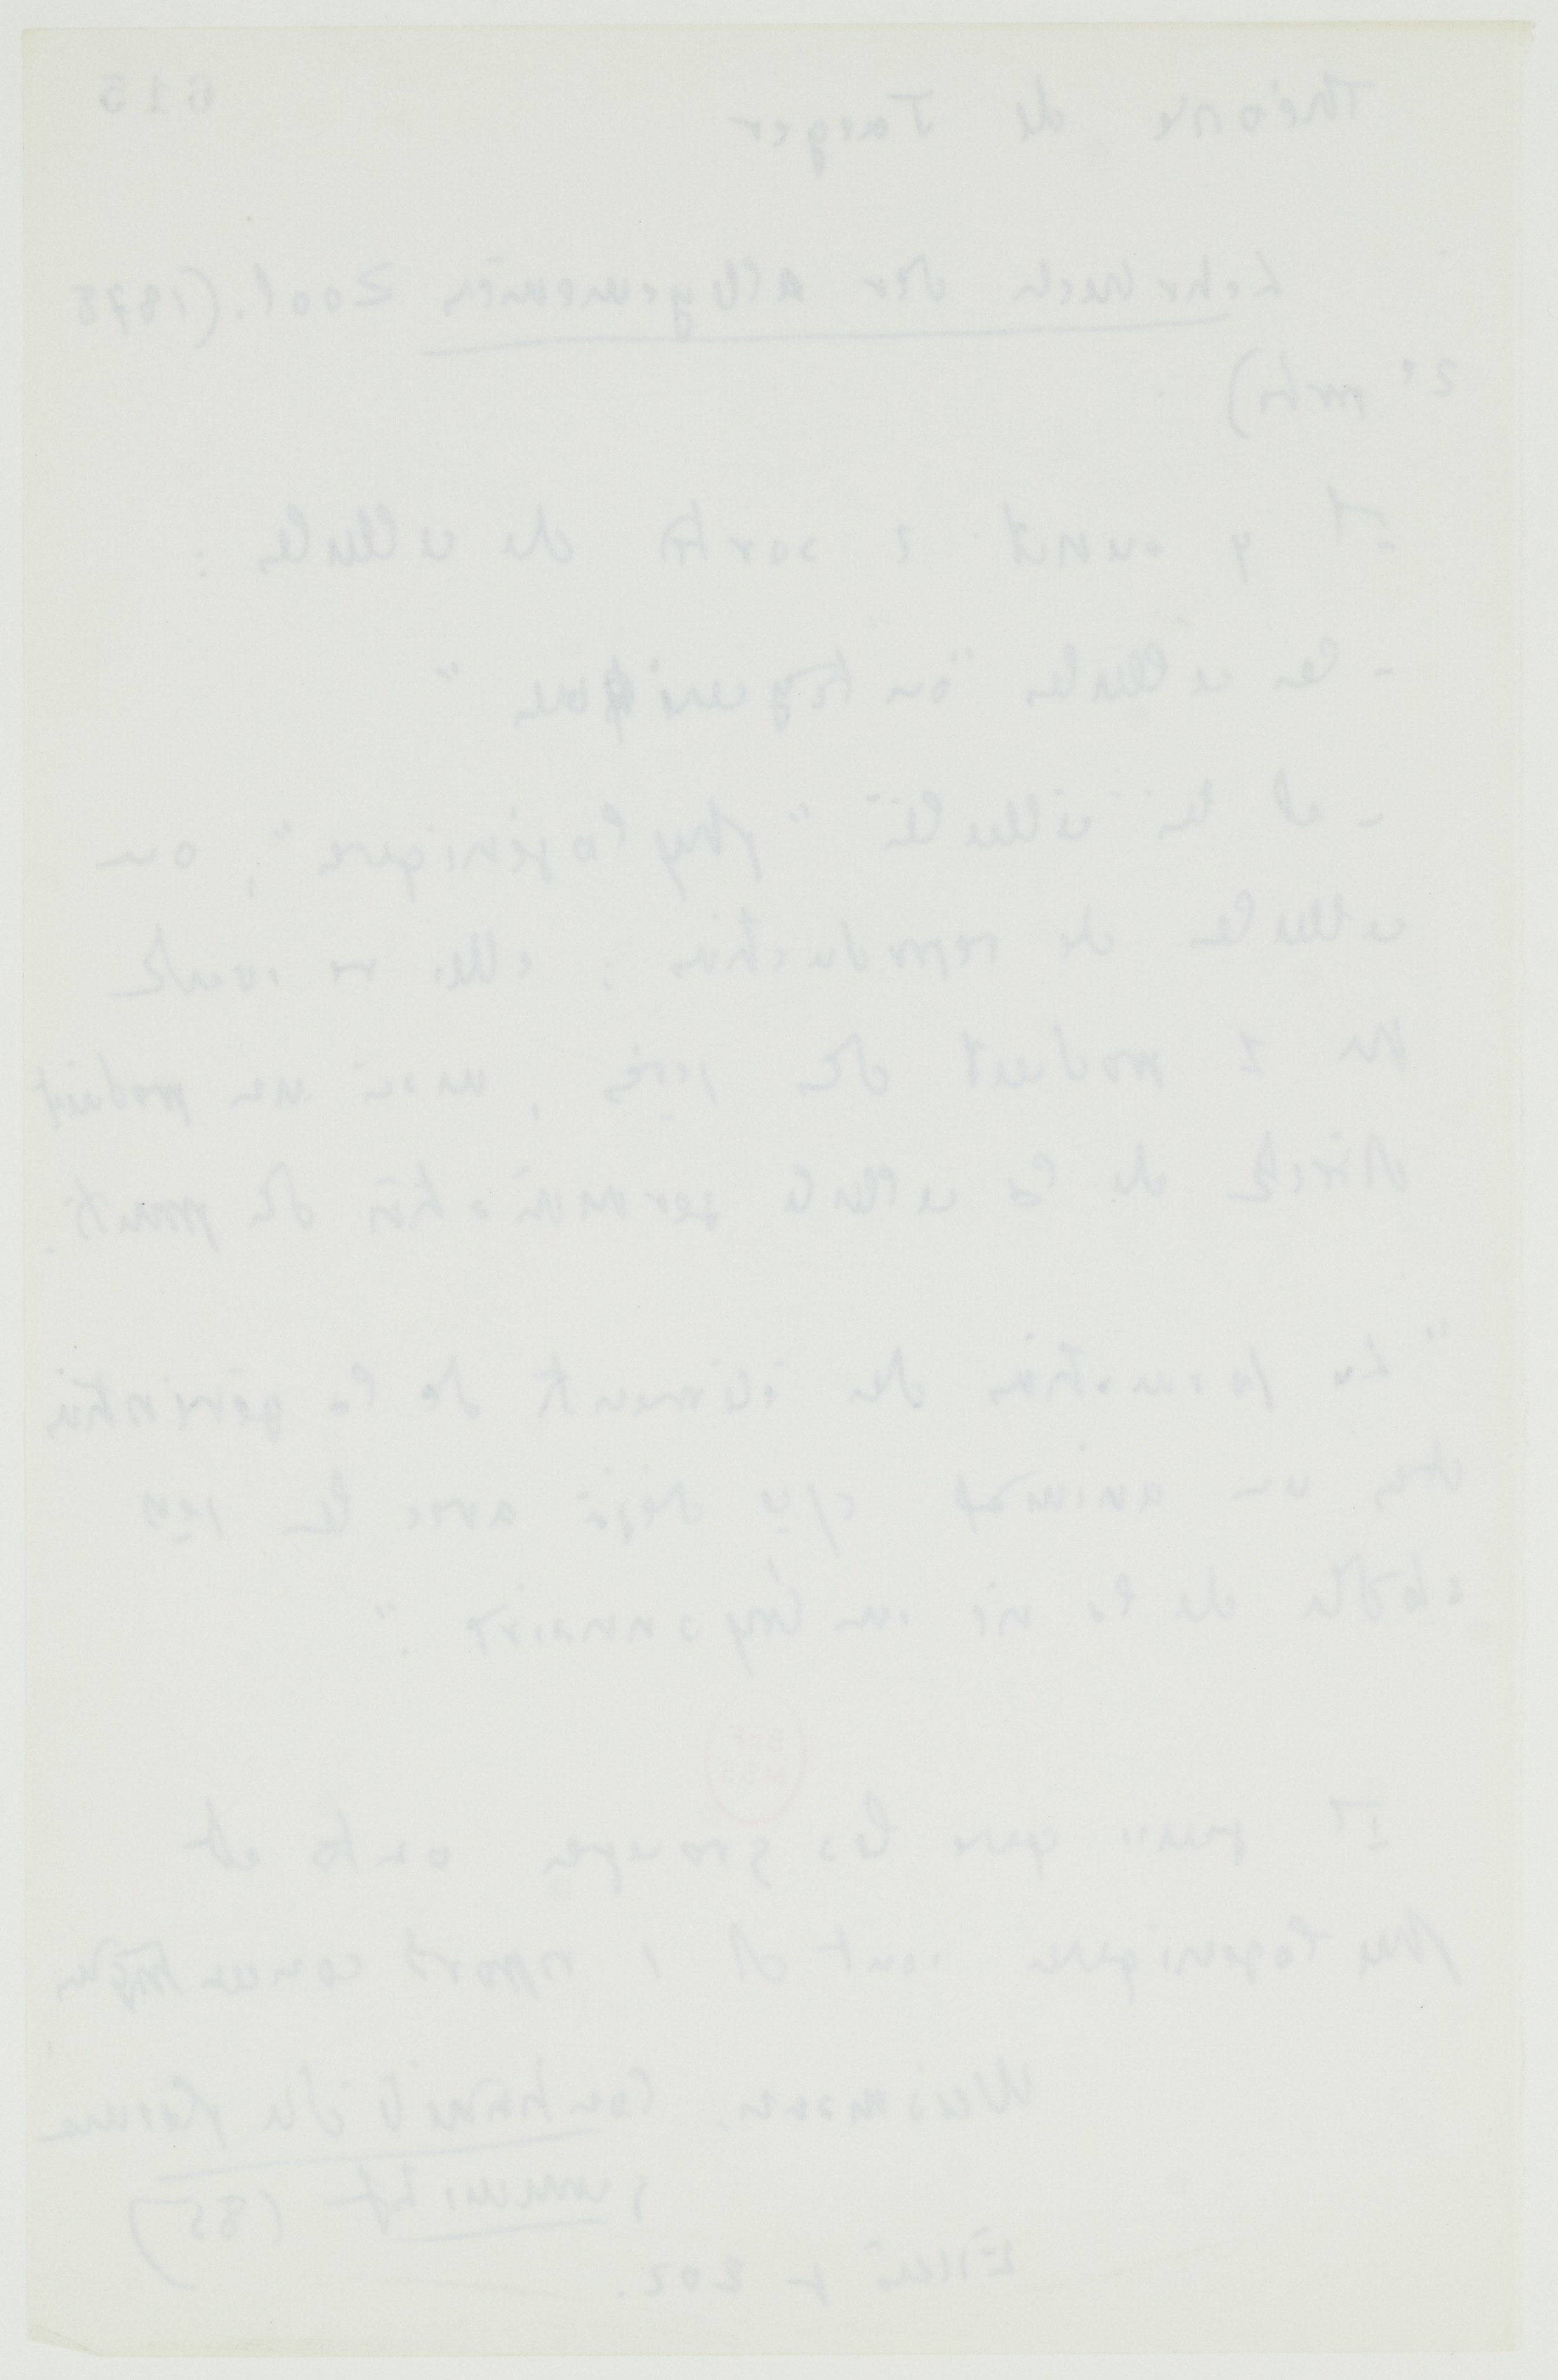 615
Théorie de Jaeger
Lehrbuch der allgemeinen Zool. (1878
2e partie)
Il y aurait 2 sortes de cellules :
- les cellules "ontogéniques"
- et les cellules "phylogéniques", ou
cellules de reproduction ; elles ne sont
pas produit des 1ères, mais un produit
directe de la cellule germinative des parents.
"La formation des éléments de la génération
chez un animal déjà avec les 1ers
stades de la vie embryonnaire."
Il que les groupes onto et
phylogéniques sont
Weismann. Continuité du plasma
germinatif (85)
Essais p 202.
BnF
MSS